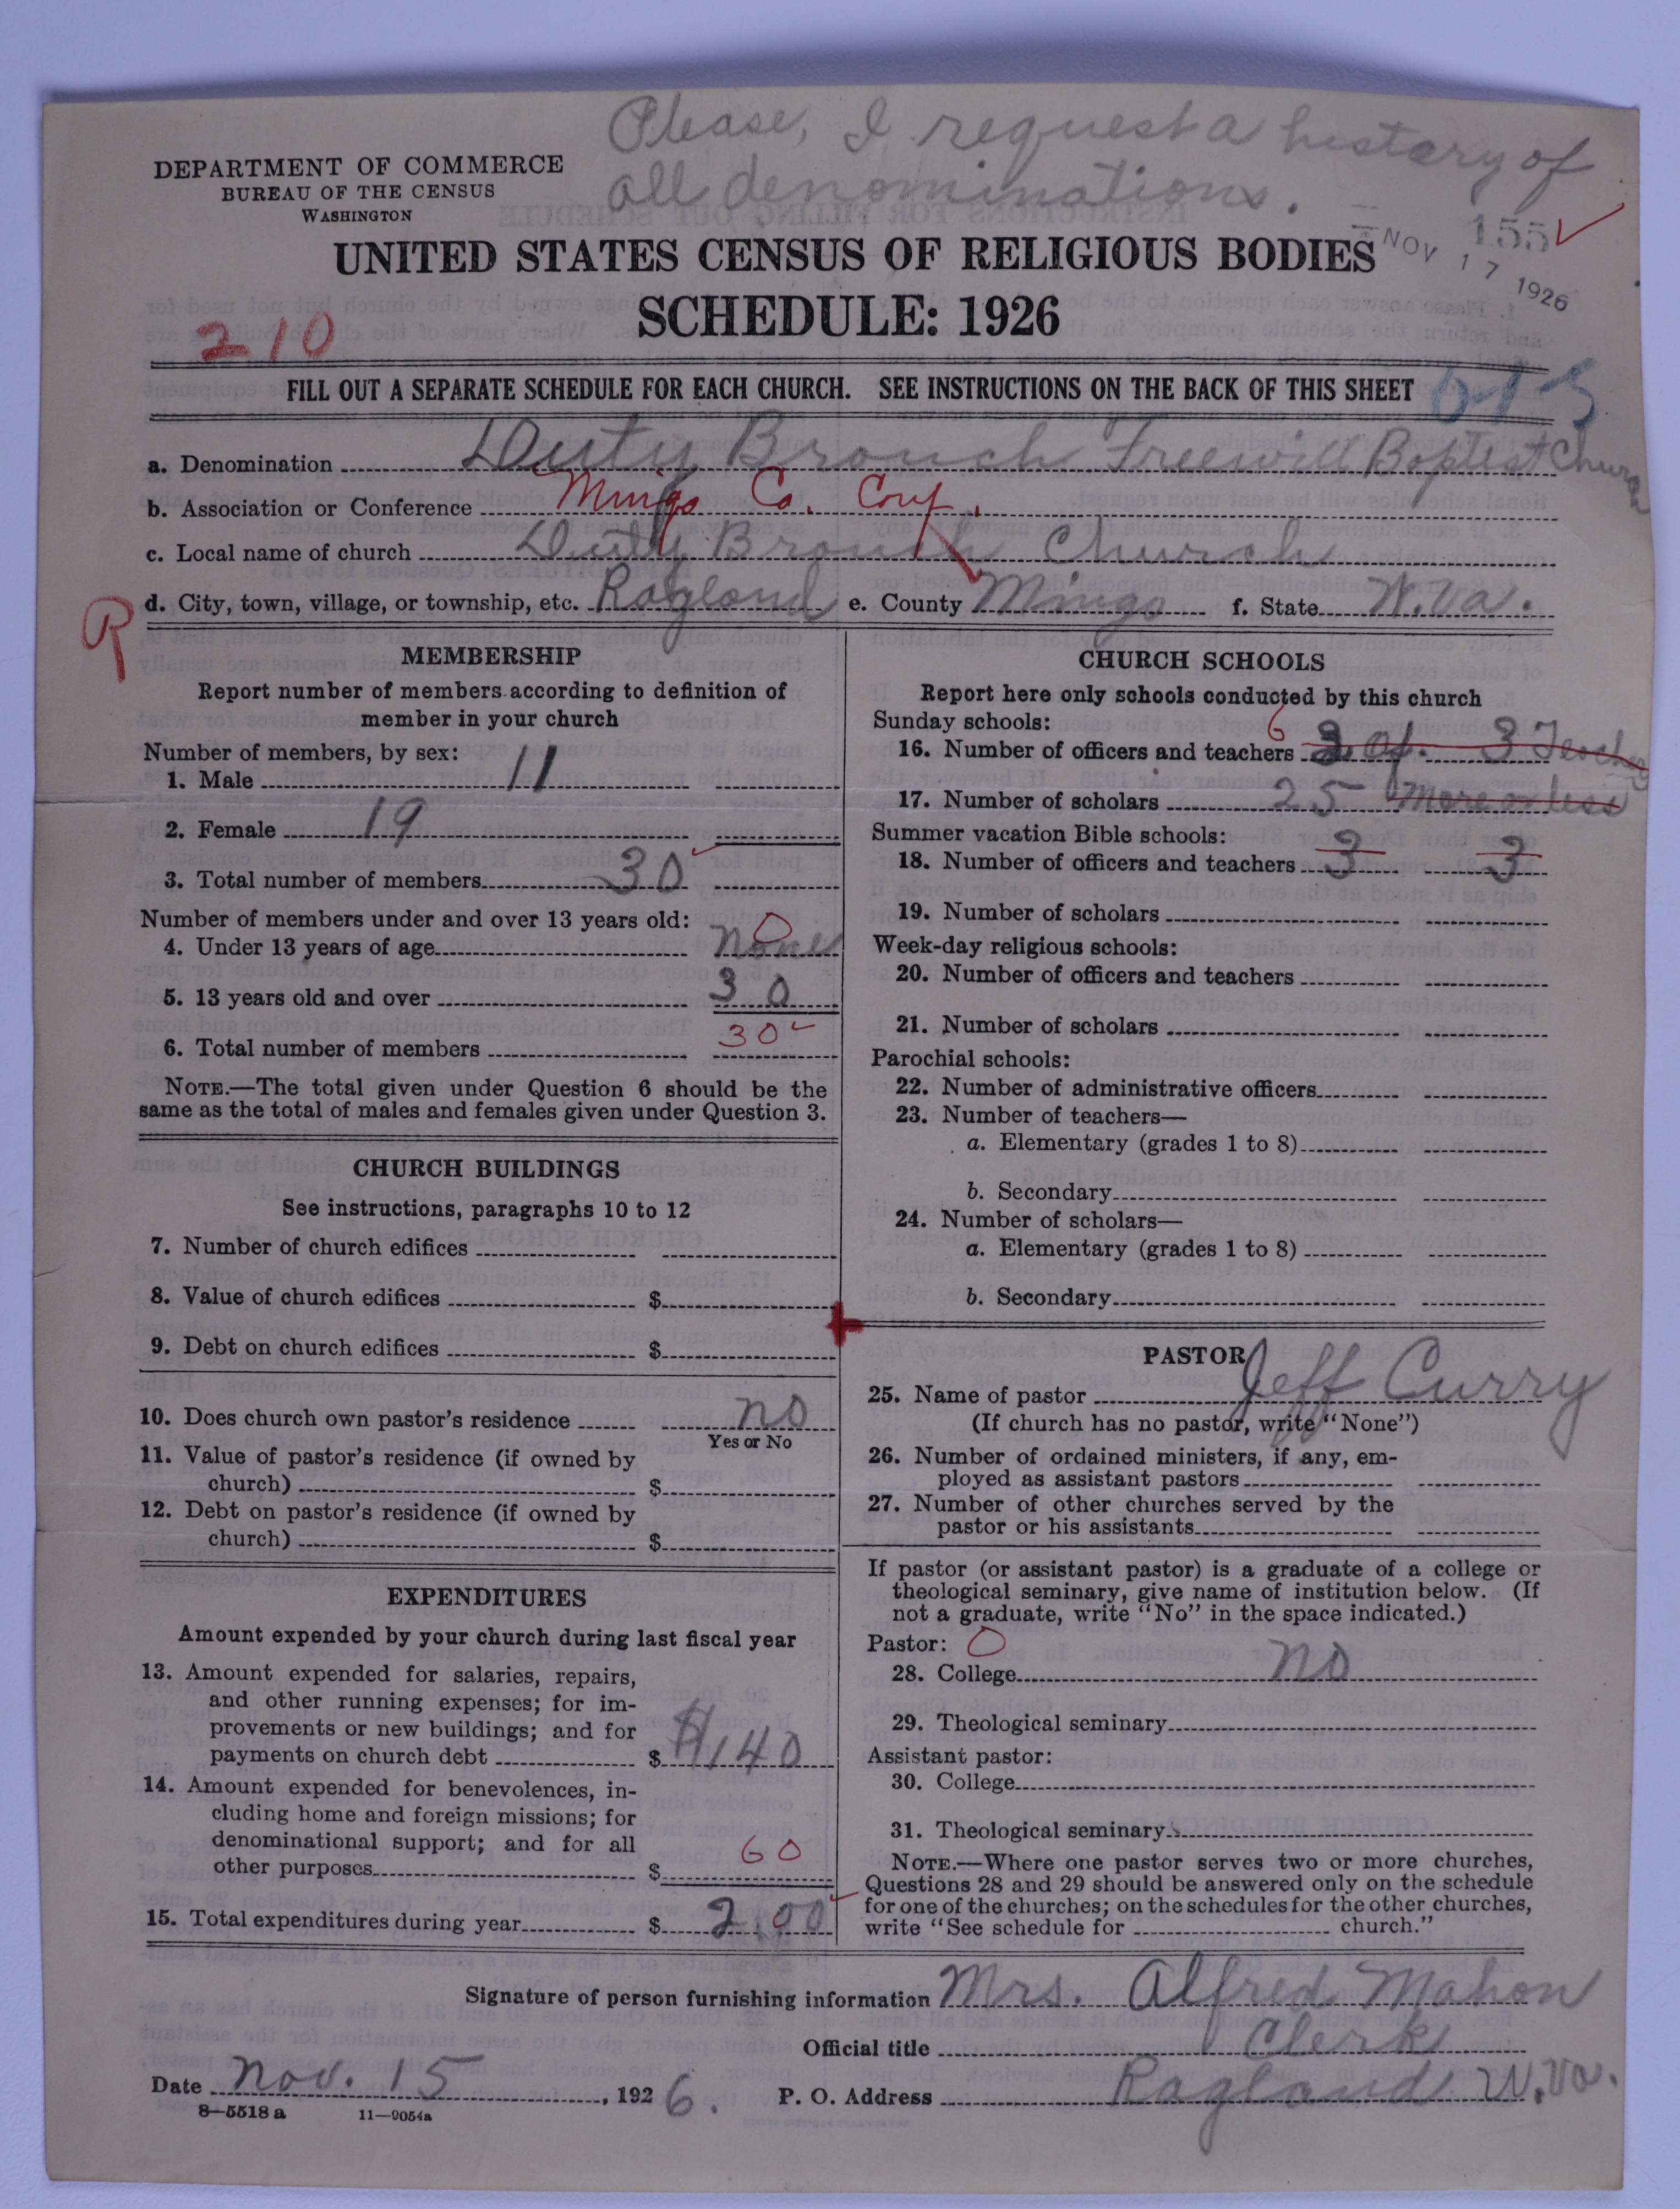 Please, I request a history of
all denominations.
DEPARTMENT OF COMMERCE
BUREAU OF THE CENSUS
WASHINGTON
155
NOV 17 1926
UNITED STATES CENSUS OF RELIGIOUS BODIES
SCHEDULE: 1926
210
FILL OUT A SEPARATE SCHEDULE FOR EACH CHURCH. SEE INSTRUCTIONS ON THE BACK OF THIS SHEET
a. Denomination Duty Bronch Freewill Boptest Church
b. Association or Conference Mingo Co. Conf.
c. Local name of church Duty Bronch Church
d. City, town, village, or township, etc. Ragland e. County Mingo f. State W.Va.
R
MEMBERSHIP
Report number of members according to definition of
member in your church
Number of members, by sex:
1. Male 11
2. Female 19
3. Total number of members 30
Number of members under and over 13 years old:
4. Under 13 years of age none 0
5. 13 years old and over 30
6. Total number of members 30
NOTE.—The total given under Question 6 should be the
same as the total of males and females given under Question 3.
CHURCH BUILDINGS
See instructions, paragraphs 10 to 12
7. Number of church edifices
8. Value of church edifices $
9. Debt on church edifices $
10. Does church own pastor's residence no
Yes or No
11. Value of pastor's residence (if owned by
church) $
12. Debt on pastor's residence (if owned by
church) $
EXPENDITURES
Amount expended by your church during last fiscal year
13. Amount expended for salaries, repairs,
and other running expenses; for im-
provements or new buildings; and for
payments on church debt $ $140
14. Amount expended for benevolences, in-
cluding home and foreign missions; for
denominational support; and for all
other purposes $ 60
15. Total expenditures during year $ 200
CHURCH SCHOOLS
Report here only schools conducted by this church
Sunday schools:
6
16. Number of officers and teachers 3 of. 3 Teachs
17. Number of scholars 25 more or less
Summer vacation Bible schools:
18. Number of officers and teachers 3 3
19. Number of scholars
Week-day religious schools:
20. Number of officers and teachers
21. Number of scholars
Parochial schools:
22. Number of administrative officers
23. Number of teachers—
a. Elementary (grades 1 to 8)
b. Secondary
24. Number of scholars—
a. Elementary (grades 1 to 8)
b. Secondary
PASTOR
25. Name of pastor Jeff Curry
(If church has no pastor, write "None")
26. Number of ordained ministers, if any, em-
ployed as assistant pastors
27. Number of other churches served by the
pastor or his assistants
If pastor (or assistant pastor) is a graduate of a college or
theological seminary, give name of institution below. (If
not a graduate, write "No" in the space indicated.)
Pastor: 0
28. College no
29. Theological seminary
Assistant pastor:
30. College
31. Theological seminary
NOTE.—Where one pastor serves two or more churches,
Questions 28 and 29 should be answered only on the schedule
for one of the churches; on the schedules for the other churches,
write "See schedule for church."
Signature of person furnishing information Mrs. Alfred Mahon
Official title Clerk
Date Nov. 15, 1926. P. O. Address Ragland W.Va.
8—5518 a 11—9054a